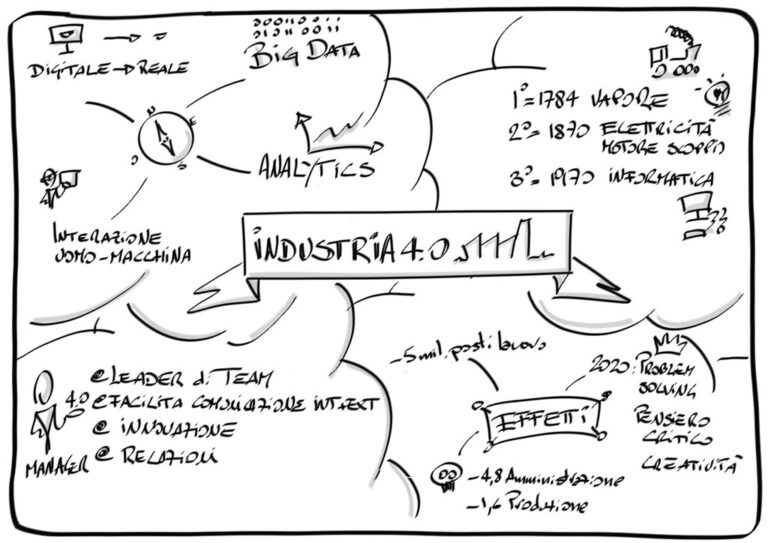 DIGITALE → REALE
BIG DATA
ANALYTICS
INTERAZIONE
UOMO-MACCHINA
N
E
S
O
1°=1784 VAPORE
2°=1870 ELETTRICITÀ
MOTORE SCOPPIO
3°=1970 INFORMATICA
INDUSTRIA 4.0
4.0
MANAGER
@ LEADER di TEAM
@ FACILITA COMUNICAZIONE INT EXT
@ INNOVAZIONE
@ RELAZIONI
-5 mil. posti lavoro
EFFETTI
-4,8 Amministrazione
-1,6 Produzione
2020: PROBLEM
SOLVING
PENSIERO
CRITICO
CREATIVITÀ